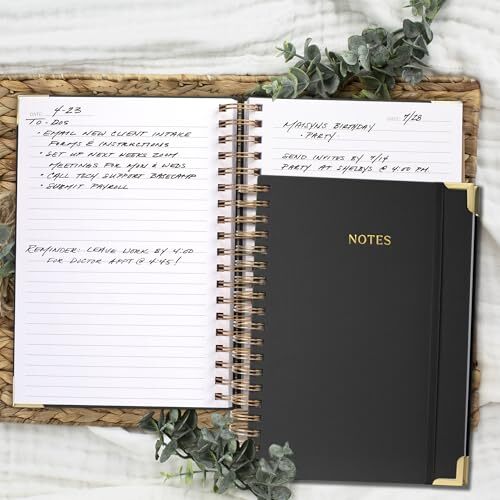 DATE: 4-23
TO-DOS
• EMAIL NEW CLIENT INTAKE
FORMS & INSTRUCTIONS
• SET UP NEXT WEEKS ZOOM
MEETINGS FOR MON & WEDS
• CALL TECH SUPPORT BASECAMP
• SUBMIT PAYROLL
REMINDER: LEAVE WORK BY 4:00
FOR DOCTOR APPT @ 4:45!
DATE: 7/28
MAISYNS BIRTHDAY
• PARTY
SEND INVITES BY 7/14
PARTY AT SHELBYS @ 4:00 PM
NOTES